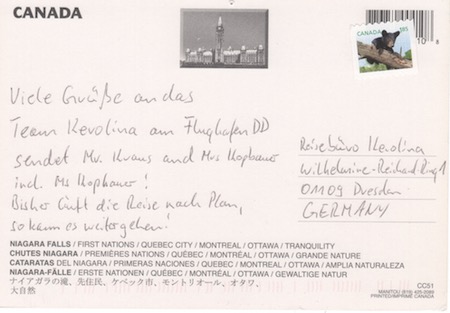 CANADA
CANADA
Viele Grüße an das
Team Kerolina am Flughafen DD
sendet Mr. Kraus and Mrs Kopbauer
incl. Ms Kopbauer!
Bisher läuft die Reise nach Plan,
so kann es weitergehen!
Reisebüro Kerolina
Wilhelmine-Reichard-Ring 1
01109 Dresden
GERMANY
NIAGARA FALLS / FIRST NATIONS / QUEBEC CITY / MONTREAL / OTTAWA / TRANQUILITY
CHUTES NIAGARA / PREMIÈRES NATIONS / QUÉBEC / MONTRÉAL / OTTAWA / GRANDE NATURE
CATARATAS DEL NIAGARA / PRIMERAS NACIONES / QUEBEC / MONTREAL / OTTAWA / AMPLIA NATURALEZA
NIAGARA-FÄLLE / ERSTE NATIONEN / QUÉBEC / MONTREAL / OTTAWA / GEWALTIGE NATUR
ナイアガラの滝、先住民、ケベック市、モントリオール、オタワ、
大自然
CC51
PRINTED/IMPRIMÉ CANADA